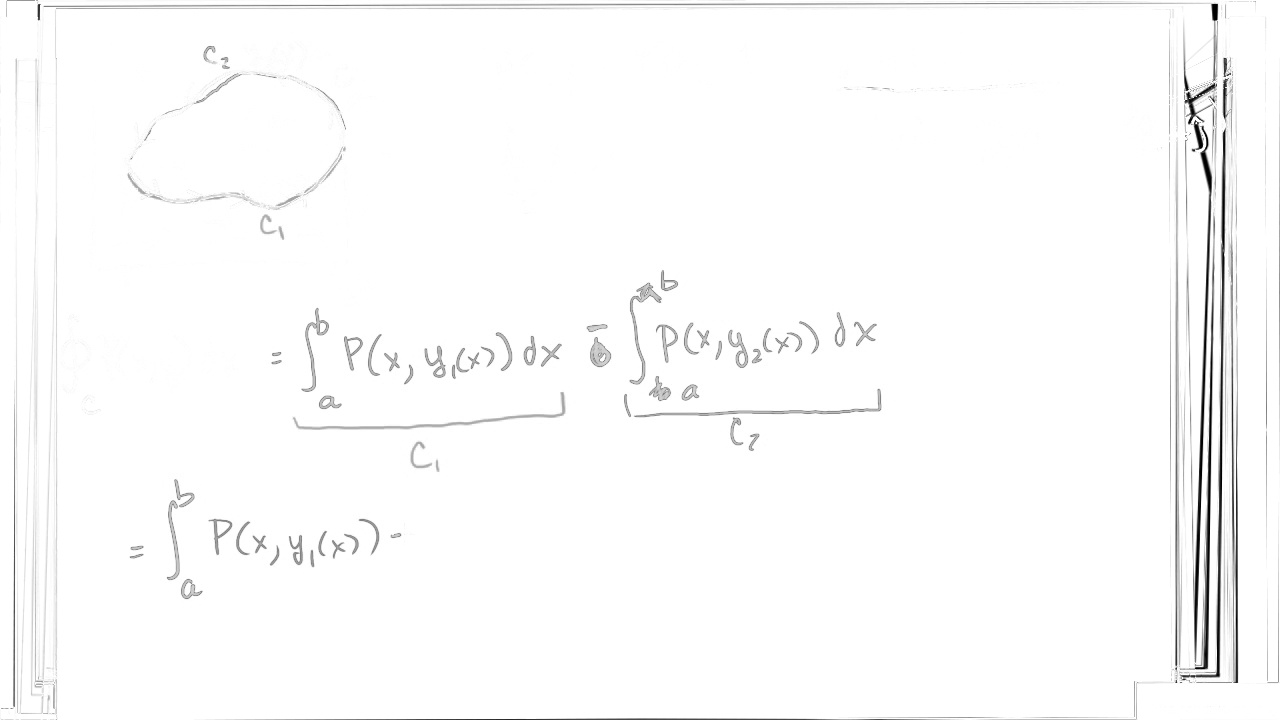 C₂
C₁
= ∫_a^b P(x, y₁(x)) dx - ∫_a^b P(x, y₂(x)) dx
C₁ C₂
= ∫_a^b P(x, y₁(x)) -